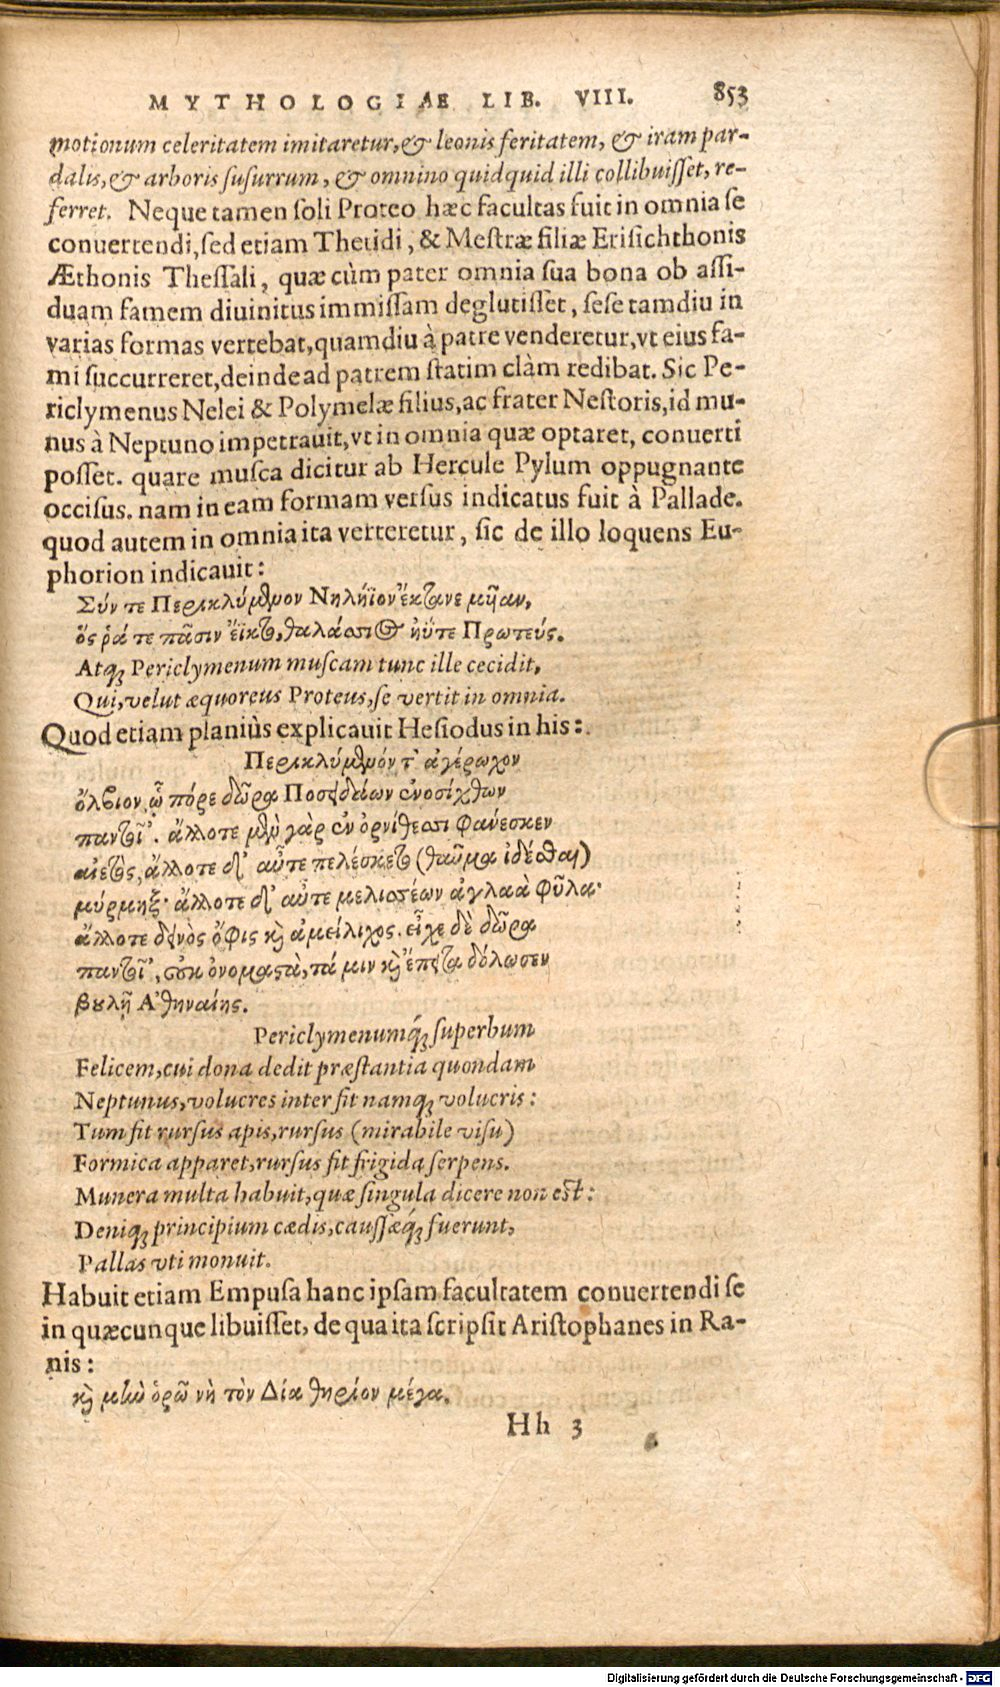 MYTHOLOGIAE LIB. VIII. 853
motionum celeritatem imitaretur, & leonis feritatem, & iram par-
dalis, & arboris susurrum, & omnino quidquid illi collibuisset, re-
ferret. Neque tamen soli Proteo hæc facultas fuit in omnia se
conuertendi, sed etiam Thetidi, & Mestræ filiæ Erisichthonis
Æthonis Thessali, quæ cùm pater omnia sua bona ob assi-
duam famem diuinitus immissam deglutisset, sese tamdiu in
varias formas vertebat, quamdiu à patre venderetur, vt eius fa-
mi succurreret, deinde ad patrem statim clàm redibat. Sic Pe-
riclymenus Nelei & Polymelæ filius, ac frater Nestoris, id mu-
nus à Neptuno impetrauit, vt in omnia quæ optaret, conuerti
posset. quare musca dicitur ab Hercule Pylum oppugnante
occisus. nam in eam formam versus indicatus fuit à Pallade.
quod autem in omnia ita verteretur, sic de illo loquens Eu-
phorion indicauit:
Σύν τε Περικλύμενον Νηλήϊον ἔκτανε μῆαν,
ὅς ῥά τε πᾶσιν ἔϊκτο, θαλάσσιος ἠΰτε Πρωτεύς.
Atq; Periclymenum muscam tunc ille cecidit,
Qui, velut æquoreus Proteus, se vertit in omnia.
Quod etiam planiùs explicauit Hesiodus in his:
Περικλύμενόν τ' ἀγέρωχον
ὄλβιον, ᾧ πόρε δῶρα Ποσειδάων ἐνοσίχθων
παντοῖ'. ἄλλοτε μὲν γὰρ ἐν ὀρνίθεσσι φάνεσκεν
αἰετὸς, ἄλλοτε δ' αὖτε πελέσκετο (θαῦμα ἰδέσθαι)
μύρμηξ· ἄλλοτε δ' αὖτε μελισσέων ἀγλαὰ φῦλα·
ἄλλοτε δεινὸς ὄφις καὶ ἀμείλιχος. εἶχε δὲ δῶρα
παντοῖ', οὐκ ὀνομαστὰ, τά μιν καὶ ἔπειτα δόλωσεν
βουλῇ Ἀθηναίης.
Periclymenumq́; superbum
Felicem, cui dona dedit præstantia quondam
Neptunus, volucres inter fit namq; volucris:
Tum fit rursus apis, rursus (mirabile visu)
Formica apparet, rursus fit frigida serpens.
Munera multa habuit, quæ singula dicere non est:
Deniq; principium cædis, caussæq́; fuerunt,
Pallas vti monuit.
Habuit etiam Empusa hanc ipsam facultatem conuertendi se
in quæcunque libuisset, de qua ita scripsit Aristophanes in Ra-
nis:
καὶ μὴν ὁρῶ νὴ τὸν Δία θηρίον μέγα.
Hh 3
Digitalisierung gefördert durch die Deutsche Forschungsgemeinschaft - DFG